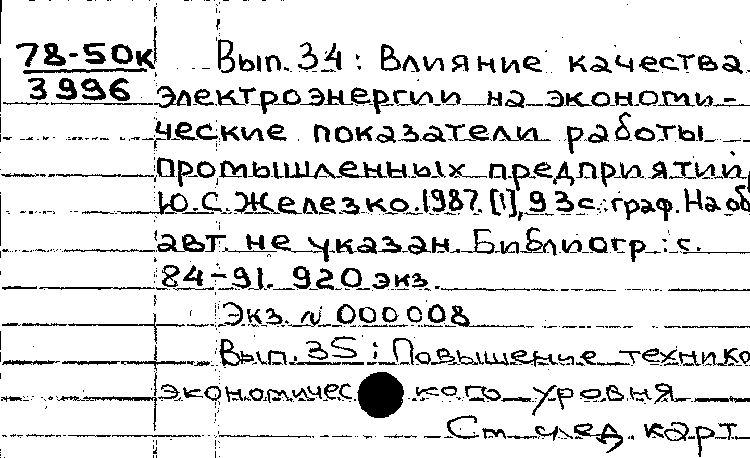 78-50к Вып. 34: Влияние качества
3996 электроэнергии на экономи-
ческие показатели работы
промышленных предприятий,
Ю.С. Железко. 1987. [1], 93 с.: граф. На об
авт. не указан. Библиогр.: с.
84-91. 920 экз.
Экз. № 000008
Вып. 35: Повышение технико
экономичес кого уровня
См след. карт